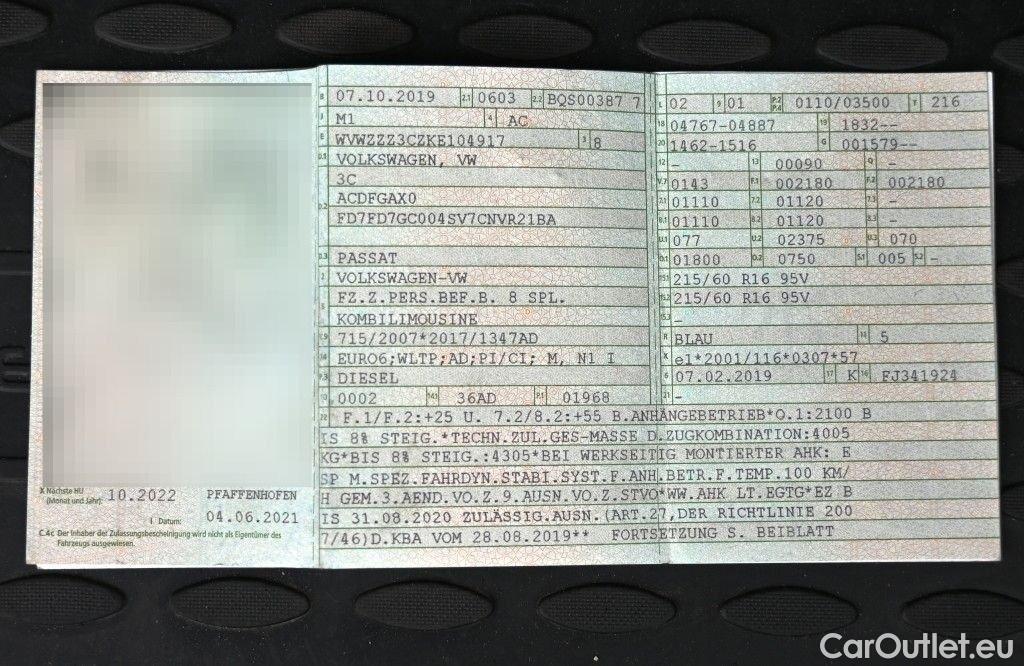 B 07.10.2019 2.1 0603 2.2 BQS00387 7
J M1 4 AC
E WVWZZZ3CZKE104917 3 8
D.1 VOLKSWAGEN, VW
3C
D.2 ACDFGAX0
FD7FD7GC004SV7CNVR21BA
D.3 PASSAT
2 VOLKSWAGEN-VW
5 FZ.Z.PERS.BEF.B. 8 SPL.
KOMBILIMOUSINE
V.9 715/2007*2017/1347AD
14 EURO6;WLTP;AD;PI/CI; M, N1 I
P.3 DIESEL
10 0002 14.1 36AD P.1 01968
L 02 9 01 P.2 P.4 0110/03500 T 216
18 04767-04887 19 1832--
20 1462-1516 G 001579--
12 - 13 00090 Q -
V.7 0143 F.1 002180 F.2 002180
7.1 01110 7.2 01120 7.3 -
8.1 01110 8.2 01120 8.3 -
U.1 077 U.2 02375 U.3 070
O.1 01800 O.2 0750 S.1 005 S.2 -
15.1 215/60 R16 95V
15.2 215/60 R16 95V
15.3 -
R BLAU 11 5
K e1*2001/116*0307*57
6 07.02.2019 17 K 16 FJ341924
21 -
22 F.1/F.2:+25 U. 7.2/8.2:+55 B.ANHÄNGEBETRIEB*O.1:2100 B
IS 8% STEIG.*TECHN.ZUL.GES-MASSE D.ZUGKOMBINATION:4005
KG*BIS 8% STEIG.:4305*BEI WERKSEITIG MONTIERTER AHK: E
SP M.SPEZ.FAHRDYN.STABI.SYST.F.ANH.BETR.F.TEMP.100 KM/
H GEM.3.AEND.VO.Z.9.AUSN.VO.Z.STVO*WW.AHK LT.EGTG*EZ B
IS 31.08.2020 ZULÄSSIG.AUSN.(ART.27,DER RICHTLINIE 200
7/46)D.KBA VOM 28.08.2019** FORTSETZUNG S. BEIBLATT
X Nächste HU
(Monat und Jahr): 10.2022 PFAFFENHOFEN
I Datum: 04.06.2021
C.4c Der Inhaber der Zulassungsbescheinigung wird nicht als Eigentümer des
Fahrzeugs ausgewiesen.
CarOutlet.eu